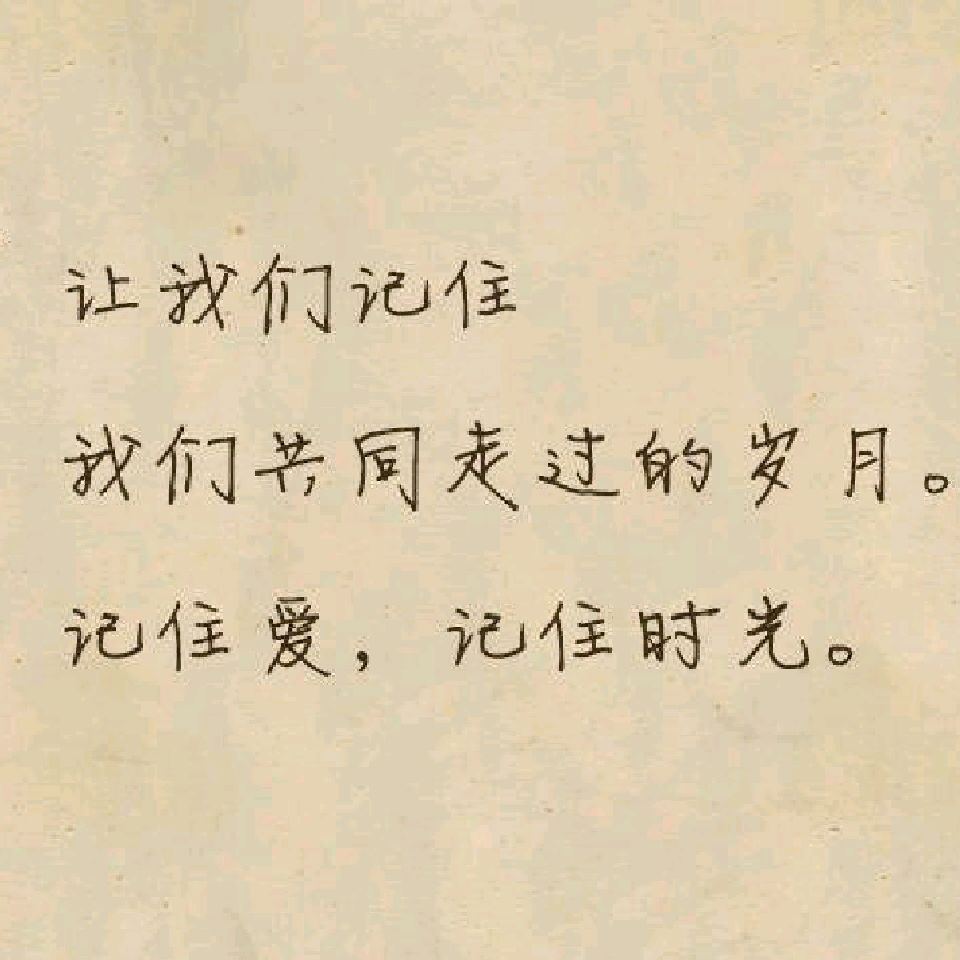 让我们记住
我们共同走过的岁月。
记住爱，记住时光。